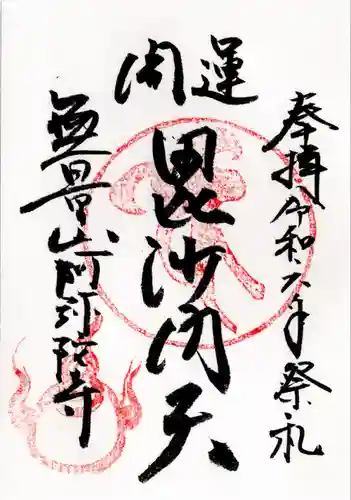 奉拝 令和六年 祭礼
開運
毘沙門天
無量山阿弥陀寺